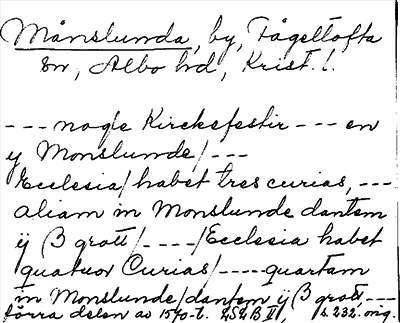 Månslunda, by, Fågeltofta
sn, Albo hd, Krist. l.
--- nogle Kirckefestir --- en
y Monslunde/ ---
Ecclesia/ habet tres curias, ---
aliam in Monslunde dantem
ij β grott/ ---- /Ecclesia habet
quatuor Curias/ ---- quartam
in Monslunde/ dantem ij β grott, ---
förra delen av 1570-t. LSLB II, s. 232. orig.